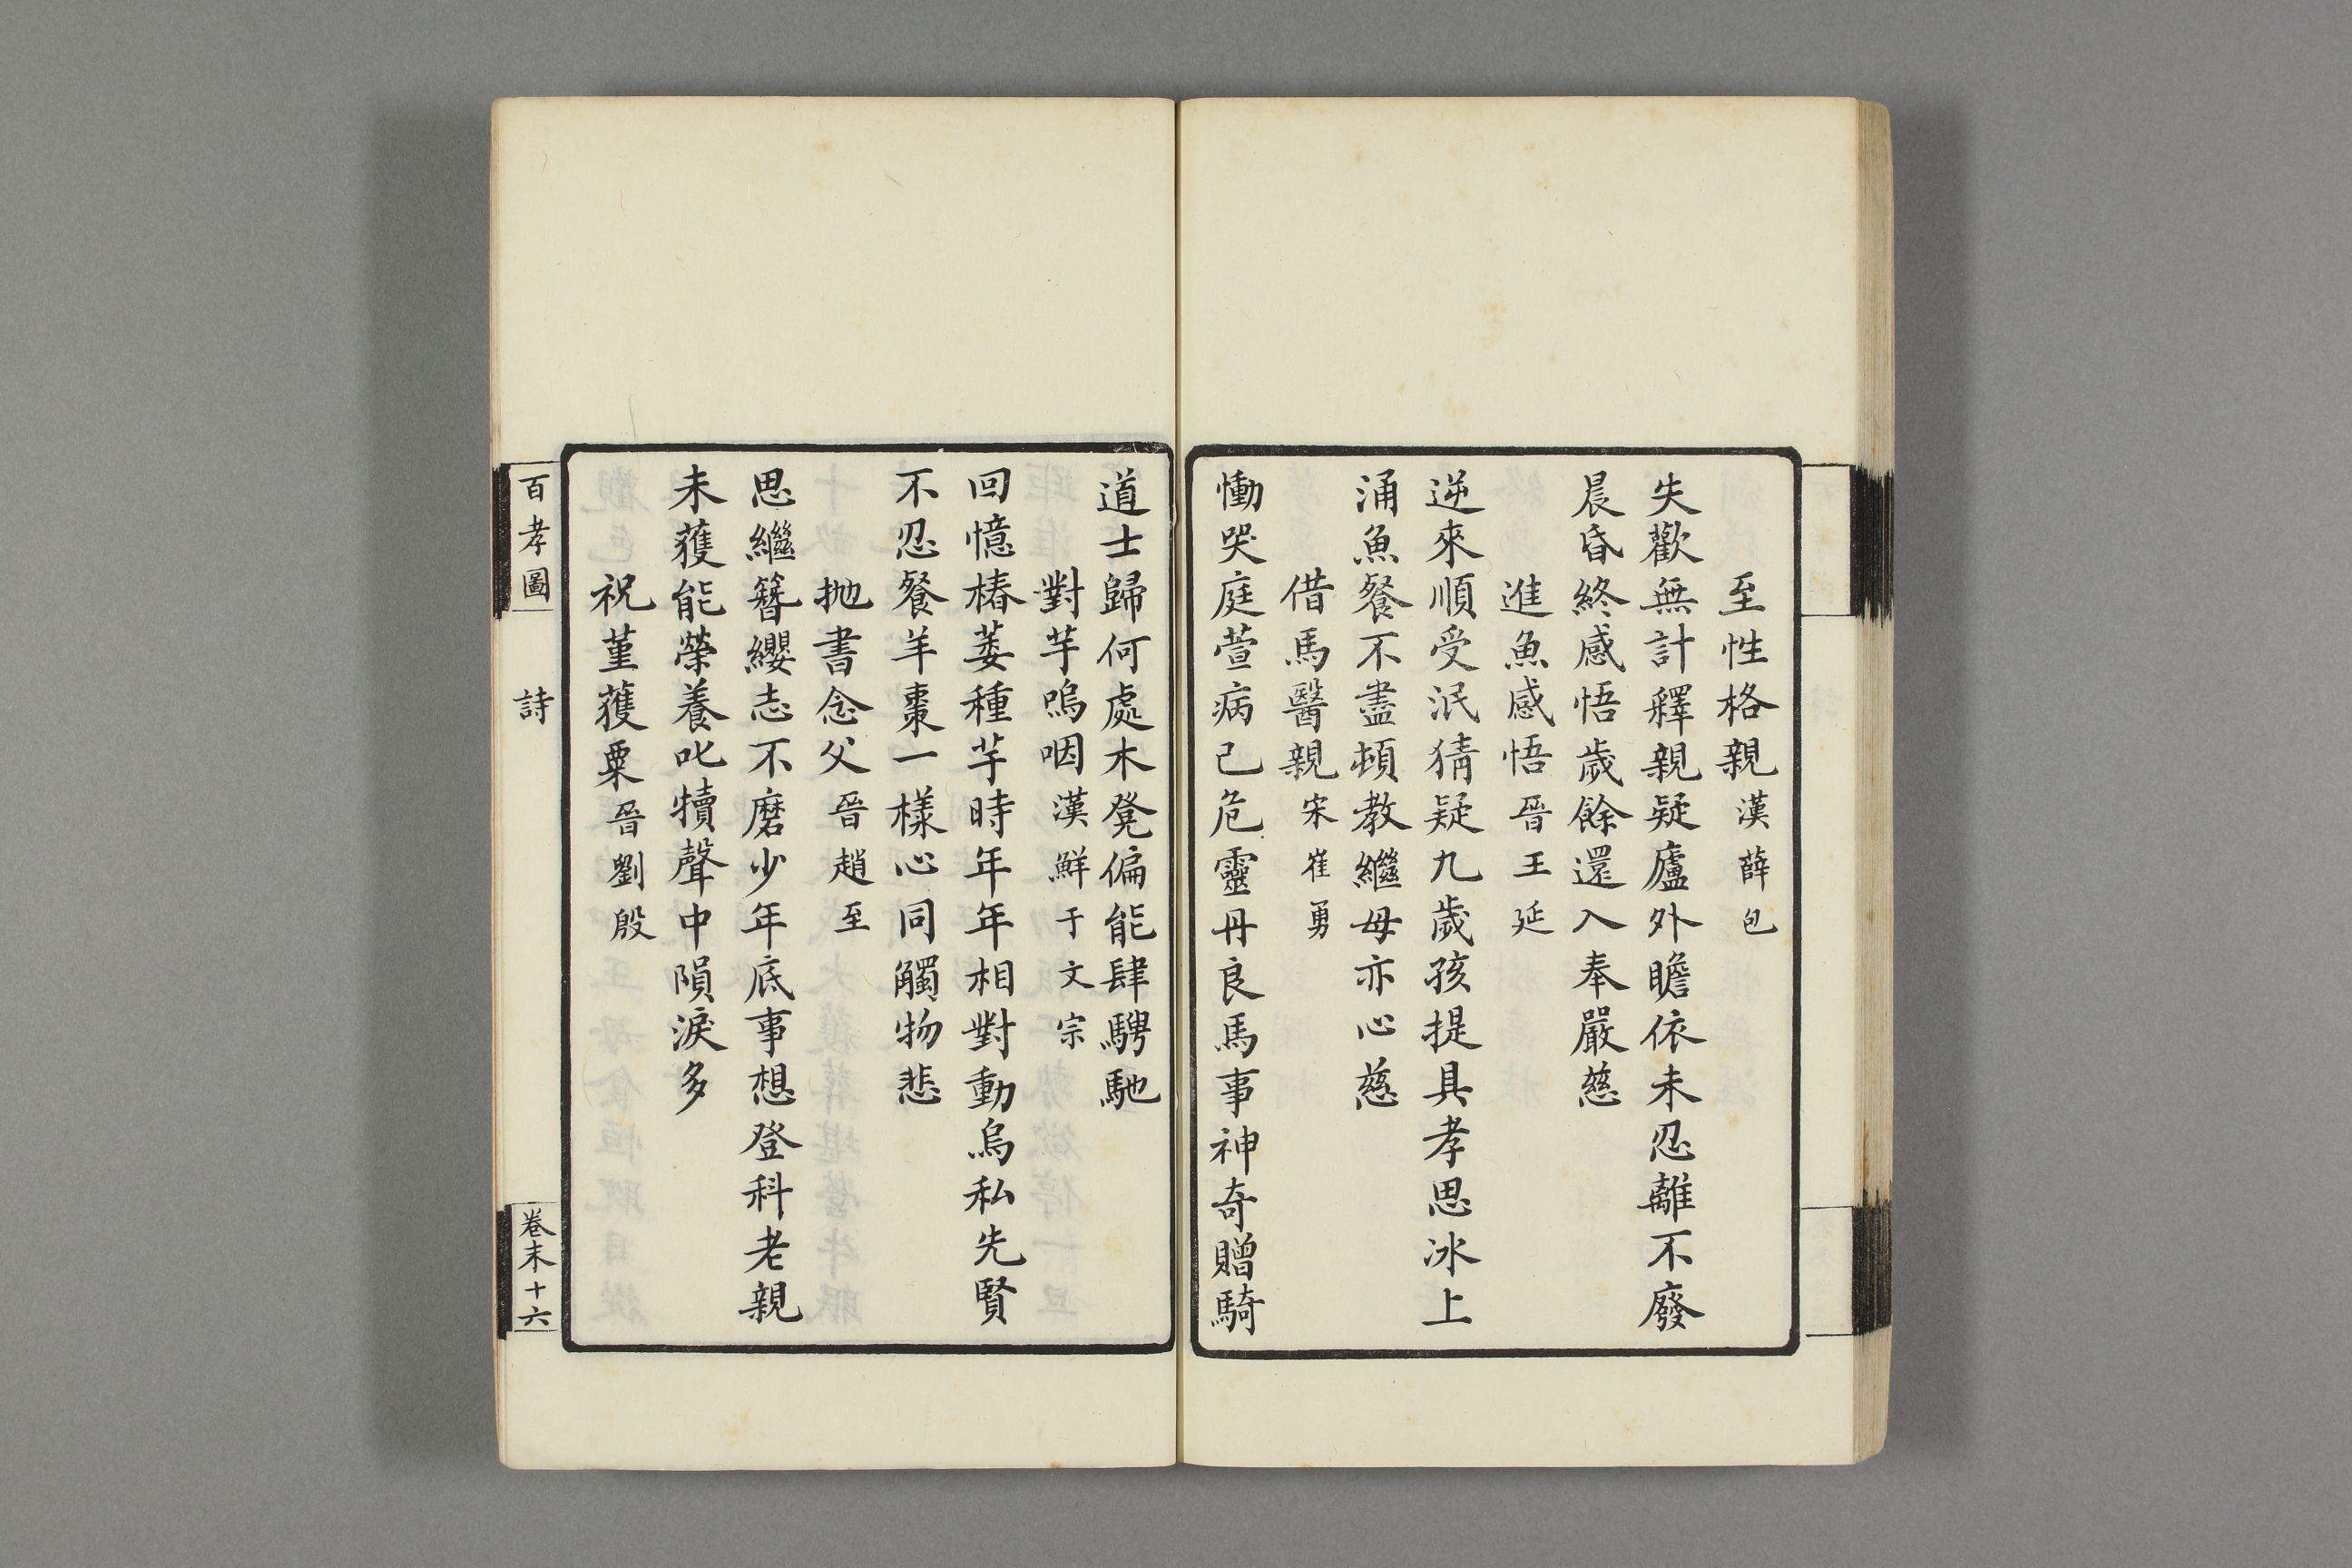 至性格親漢薛包
失歡無計釋親疑廬外瞻依未忍離不廢
晨昏終感悟歲餘還入奉嚴慈
進魚感悟晉王延
逆來順受泯猜疑九歲孩提具孝思冰上
涌魚餐不盡頓教繼母亦心慈
借馬醫親宋崔勇
慟哭庭萱病已危靈丹良馬事神奇贈騎
道士歸何處木凳偏能肆騁馳
對芋嗚咽漢鮮于文宗
回憶椿萎種芋時年年相對動烏私先賢
不忍餐羊棗一樣心同觸物悲
拋書念父晉趙至
思繼簪纓志不磨少年底事想登科老親
未獲能榮養叱犢聲中隕淚多
祝堇獲粟晉劉殷
百孝圖 詩 卷末十六